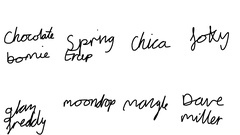 Chocolate
bonnie
Spring
trap
chica
foxy
glam
freddy
moondrop
mangle
Dave
miller